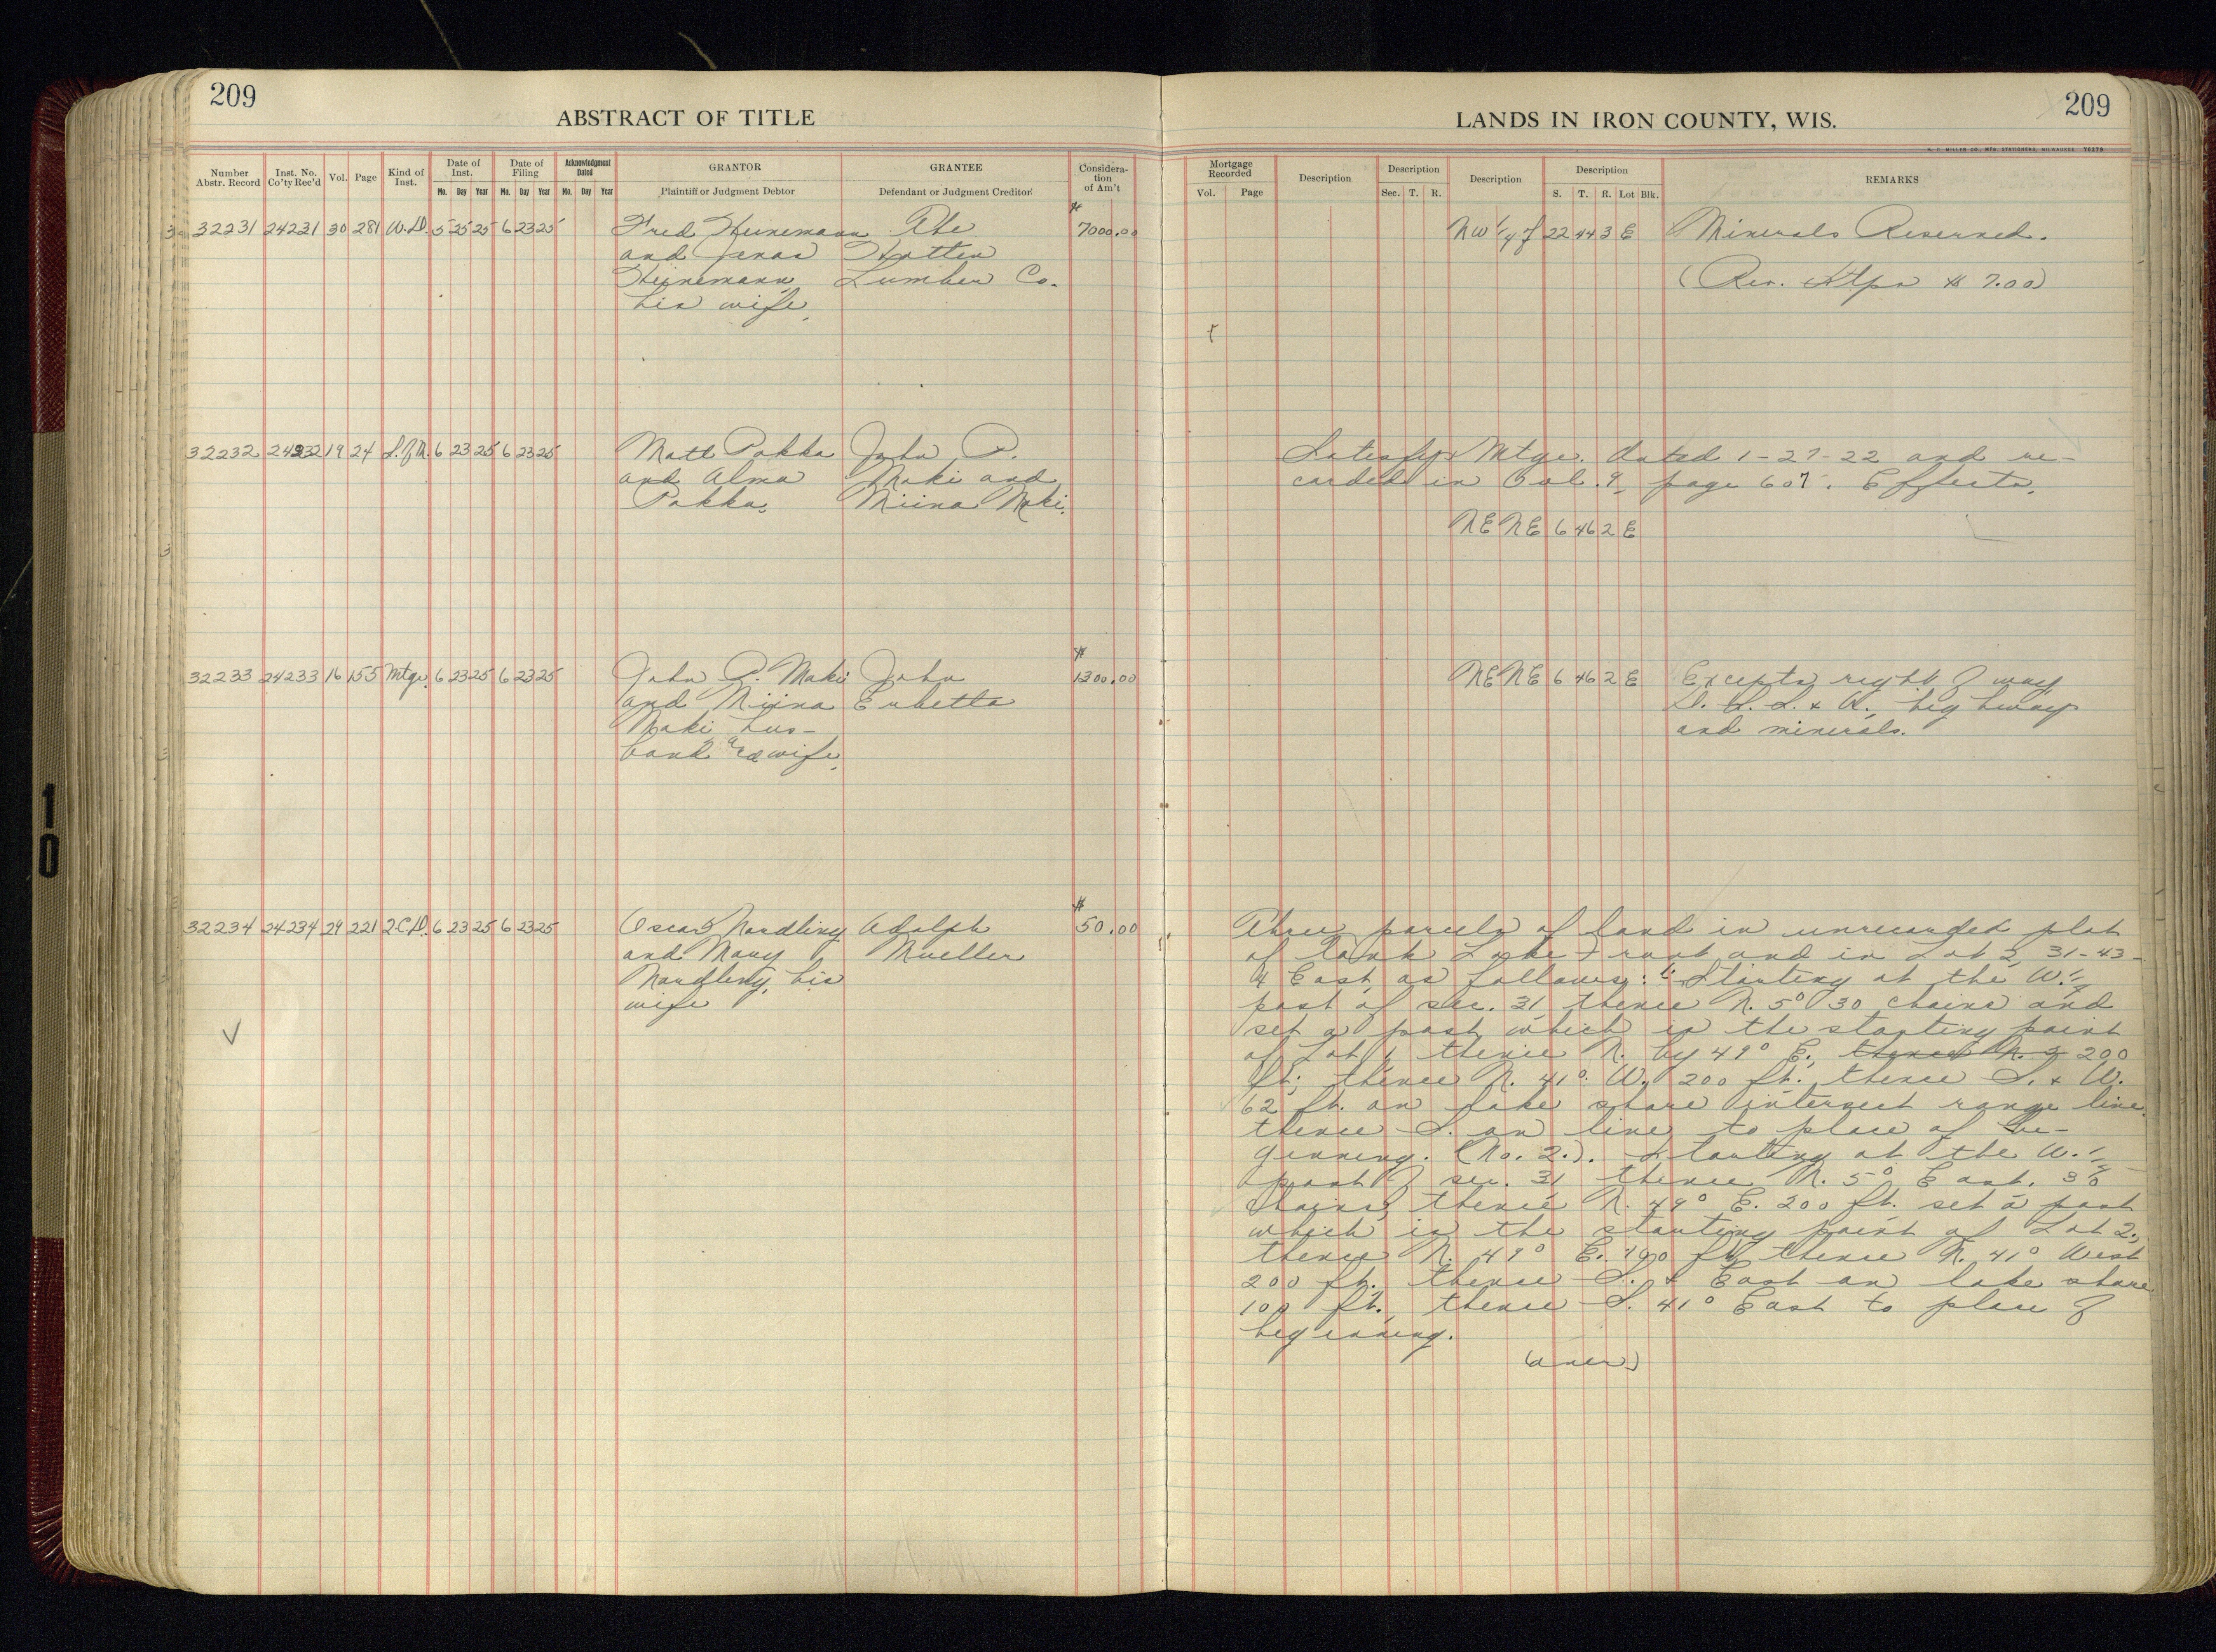 209
ABSTRACT OF TITLE
Number Abstr. Record
Inst. No. Co'ty Rec'd
Vol.
Page
Kind of Inst.
Date of Inst.
Mo. Day Year
Date of Filing
Mo. Day Year
Acknowledgment Dated
Mo. Day Year
GRANTOR
Plaintiff or Judgment Debtor
GRANTEE
Defendant or Judgment Creditor
Considera-
tion
of Am't
32231 24231 30 281 W.D. 5 25 25 6 23 25 Fred Heinemann The $7000.00
and Hatten
Heinemann Lumber Co.
his wife.
32232 24232 19 24 S.of M. 6 23 25 6 23 25 Matt Pakka John P.
and Alma Maki and
Pakka. Miina Maki.
32233 24233 16 155 Mtge. 6 23 25 6 23 25 John P. Maki John $1300.00
and Miina Erbetta
Maki hus-
band and wife.
32234 24234 29 221 2.C.D. 6 23 25 6 23 25 Oscar Nordling Adolph $50.00
and Mary Mueller
Nordling, his
wife
V
209
LANDS IN IRON COUNTY, WIS.
H. C. MILLER CO., MFG. STATIONERS, MILWAUKEE
Mortgage Recorded
Vol. Page
Description
Description
Sec. T. R.
Description
Description
S. T. R. Lot Blk.
REMARKS
NW 1/4 of 22 44 3 E Minerals Reserved.
(Rev. Stps $7.00)
Satisfys Mtge. dated 1-27-22 and re-
corded in Vol. 9, page 607. Effects.
NE NE 6 46 2 E
NE NE 6 46 2 E Excepts right of way
D. S. S. & A., highway
and minerals.
Three parcels of land in unrecorded plat
of Lake Front and in Lot 2, 31-43-
4 East as follows: Starting at the W. 1/4
post of sec. 31 thence N. 5° 30 chains and
set a post which is the starting point
of Lot 1 thence N. by 49° E., thence N. 200
ft., thence N. 41° W. 200 ft., thence S. & W.
62 ft. on lake shore intersect range line,
thence S. on line to place of be-
ginning. (No. 2.). Starting at the W. 1/4
post of sec. 31 thence N. 5° East. 30
chains, thence N. 49° E. 200 ft. set a post
which is the starting point of Lot 2.,
thence N. 49° E. 100 ft., thence N. 41° West
200 ft., thence S. & East on lake shore
100 ft., thence S. 41° East to place of
beginning.
(over)
10